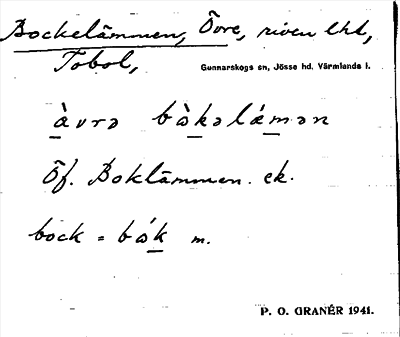 Bockelämmen, Övre, riven lht,
Tobol,
Gunnarskogs sn, Jösse hd. Värmlands l.
àvrə bàkəlámən
Öf. Boklämmen. ek.
bock = bák m.
P. O. GRANÉR 1941.